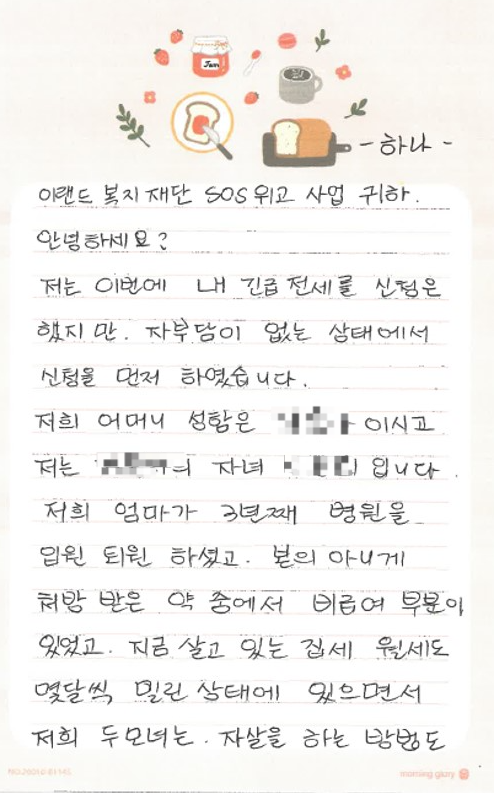 Jam
- 하나 -
이랜드 복지재단 SOS위고 사업 귀하.
안녕하세요?
저는 이번에 내 긴급전세를 신청은
했지만. 자부담이 없는 상태에서
신청을 먼저 하였습니다.
저희 어머니 성함은 이시고
저는 의 자녀 입니다.
저희 엄마가 3년째 병원을
입원 퇴원 하셨고. 본의 아니게
처방 받은 약 중에서 비급여 부분이
있었고. 지금 살고 있는 집세 월세도
몇달씩 밀린 상태에 있으면서
저희 두모녀는. 자살을 하는 방법도
morning glory